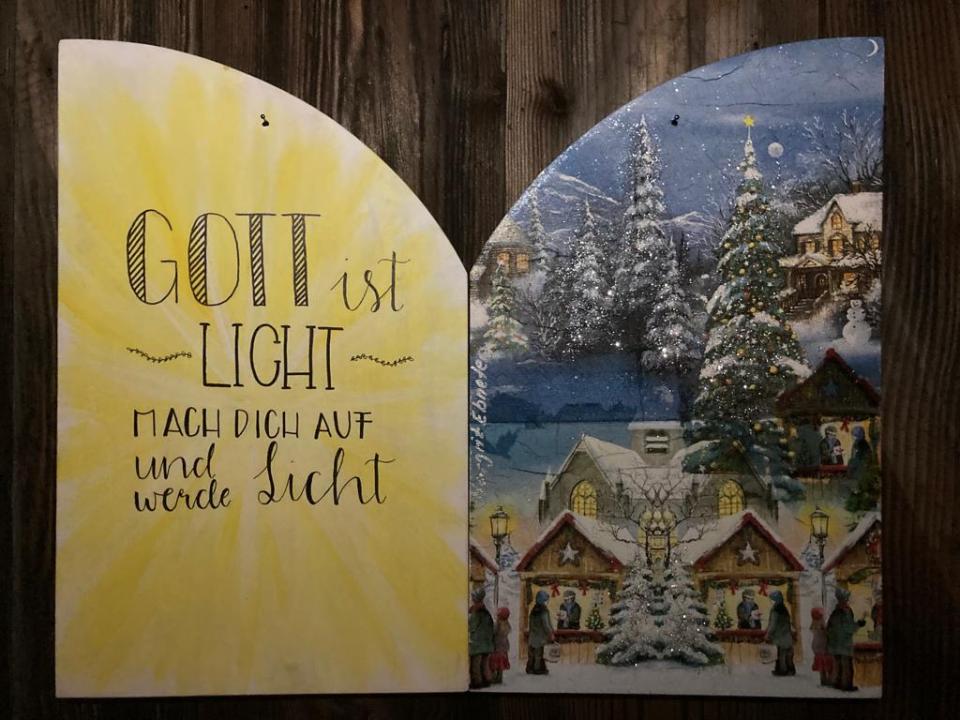 GOTT ist
LICHT
MACH DICH AUF
und
werde Licht
Ebneter